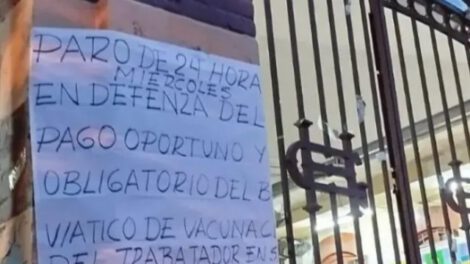 PARO DE 24 HORA
MIERCOLES
EN DEFENZA DEL
PAGO OPORTUNO Y
OBLIGATORIO DEL B
VIATICO DE VACUNAC
DEL TRABATADOR EN S